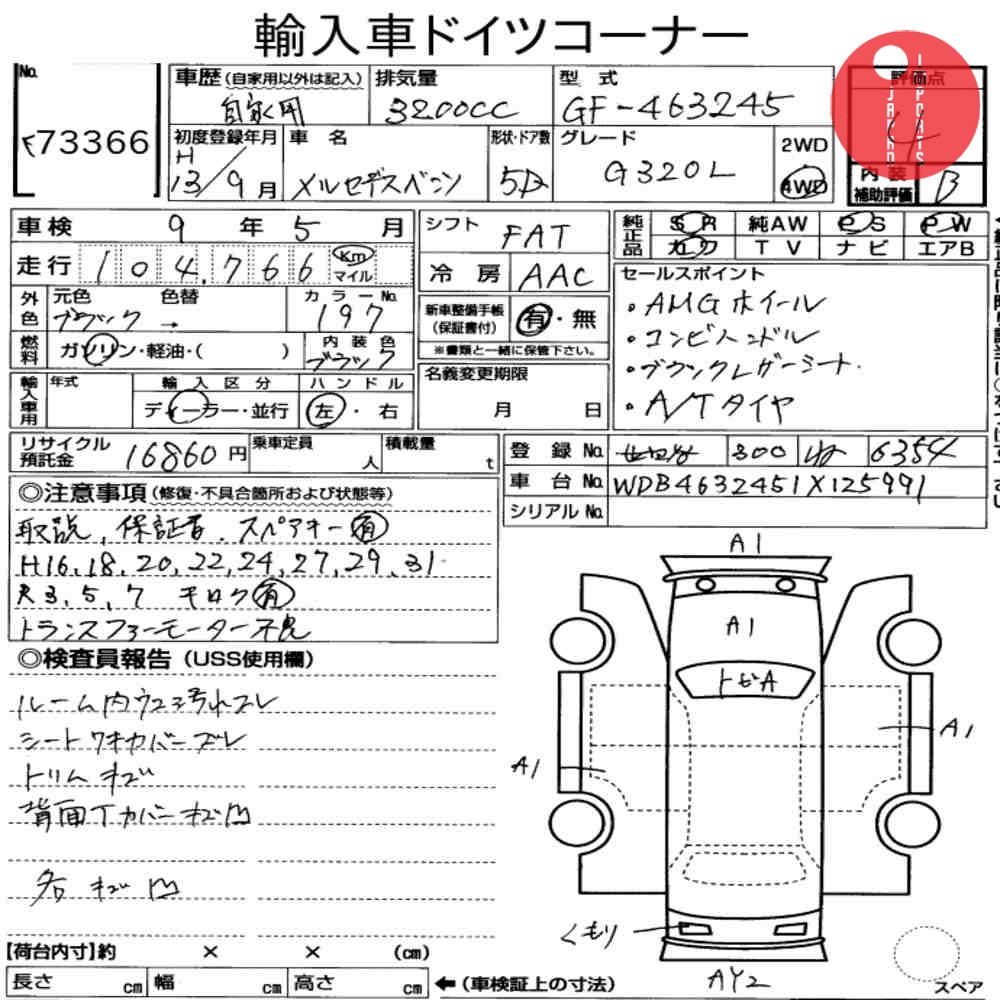 輸入車ドイツコーナー
No.
73366
車歴(自家用以外は記入)
自家用
排気量
3200CC
型 式
GF-463245
評価点
4
JAPAN
IMPORTS
初度登録年月
H
13/9月
車 名
メルセデスベンツ
形状・ドア数
5D
グレード
G320L
2WD
4WD
内 装
補助評価
B
車検 9 年 5 月
シフト FAT
純正品
SR 純AW PS PW
カワ TV ナビ エアB
走行 104,766 Km
マイル
冷 房 AAC
セールスポイント
・AMGホイール
・コンビハンドル
・ブラックレザーシート.
・A/Tタイヤ
外色
元色 色替
ブラック →
カラーNo.
197
新車整備手帳
(保証書付)
有・無
※書類と一緒に保管下さい。
燃料
ガソリン・軽油・( )
内装色
ブラック
名義変更期限
月 日
輸入車用
年式
輸入区分
ディーラー・並行
ハンドル
左・右
リサイクル
預託金 16860円
乗車定員
人
積載量
t
登録No. 300 6354
車台No. WDB4632451X125991
シリアルNo.
◎注意事項(修復・不具合箇所および状態等)
取説、保証書、スペアキー有
H16,18,20,22,24,27,29,31
R3,5,7 キロク有
トランスファーモーター不良
◎検査員報告(USS使用欄)
ルーム内ウス汚れスレ
シートワキカバーズレ
トリムキズ
背面Tカバーキズ凹
各キズ凹
A1
A1
トビA
A1
A1
くもり
AY2
スペア
【荷台内寸】約 × × (cm)
長さ cm 幅 cm 高さ cm ←(車検証上の寸法)